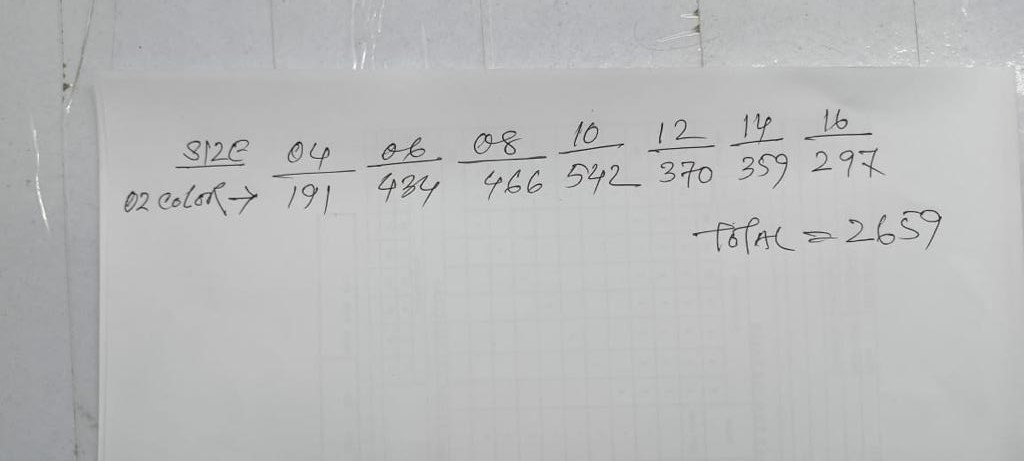 SIZE 04 06 08 10 12 14 16
02 color → 191 434 466 542 370 359 297
Total = 2659